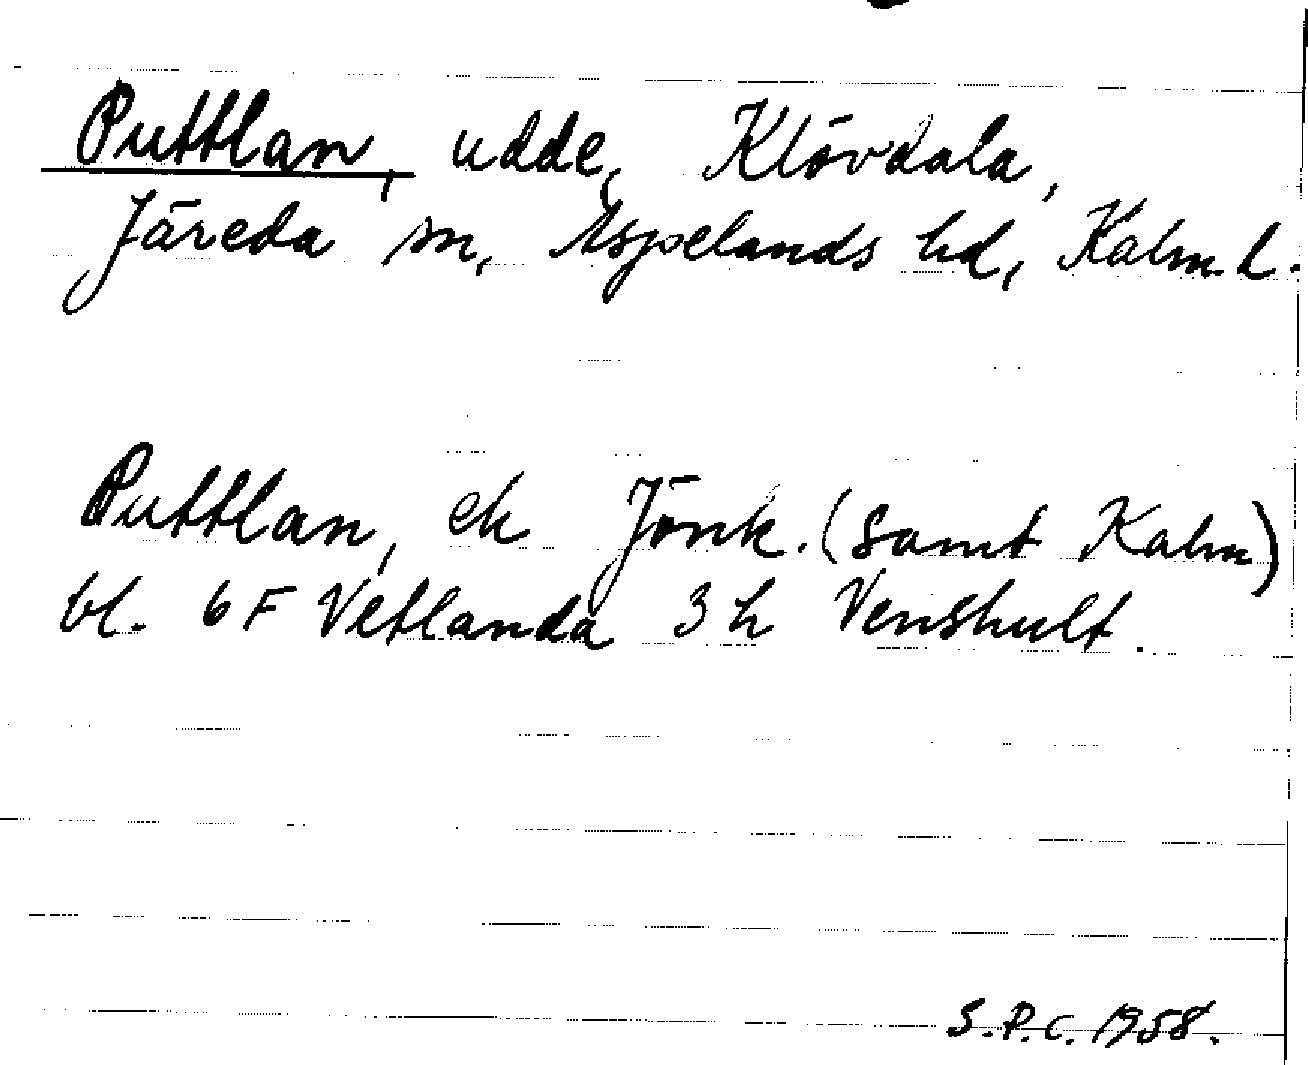 Puttlan, udde, Klövdala,
Järeda sn, Aspelands hd, Kalm. L.
Puttlan, ek Jönk. (samt Kalm)
bl. 6 F Vetlanda 3 h Venshult.
S.P.C. 1958.